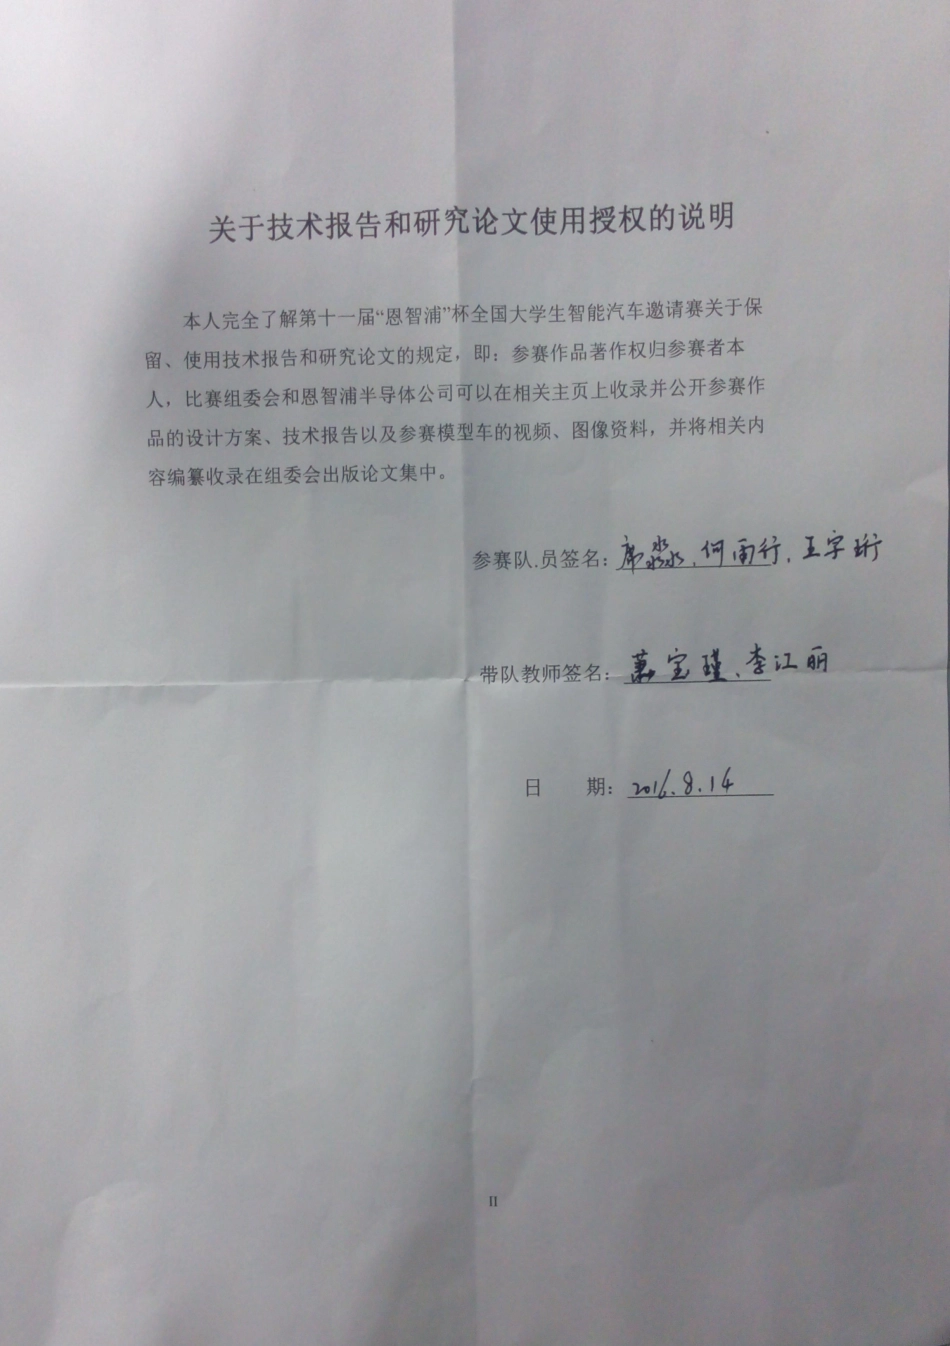 关于技术报告和研究论文使用授权的说明
本人完全了解第十一届“恩智浦”杯全国大学生智能汽车邀请赛关于保
留、使用技术报告和研究论文的规定，即：参赛作品著作权归参赛者本
人，比赛组委会和恩智浦半导体公司可以在相关主页上收录并公开参赛作
品的设计方案、技术报告以及参赛模型车的视频、图像资料，并将相关内
容编纂收录在组委会出版论文集中。
参赛队.员签名：席淼、何雨行、王宇珩
带队教师签名：萧宝瑾、李江丽
日 期：2016.8.14
II